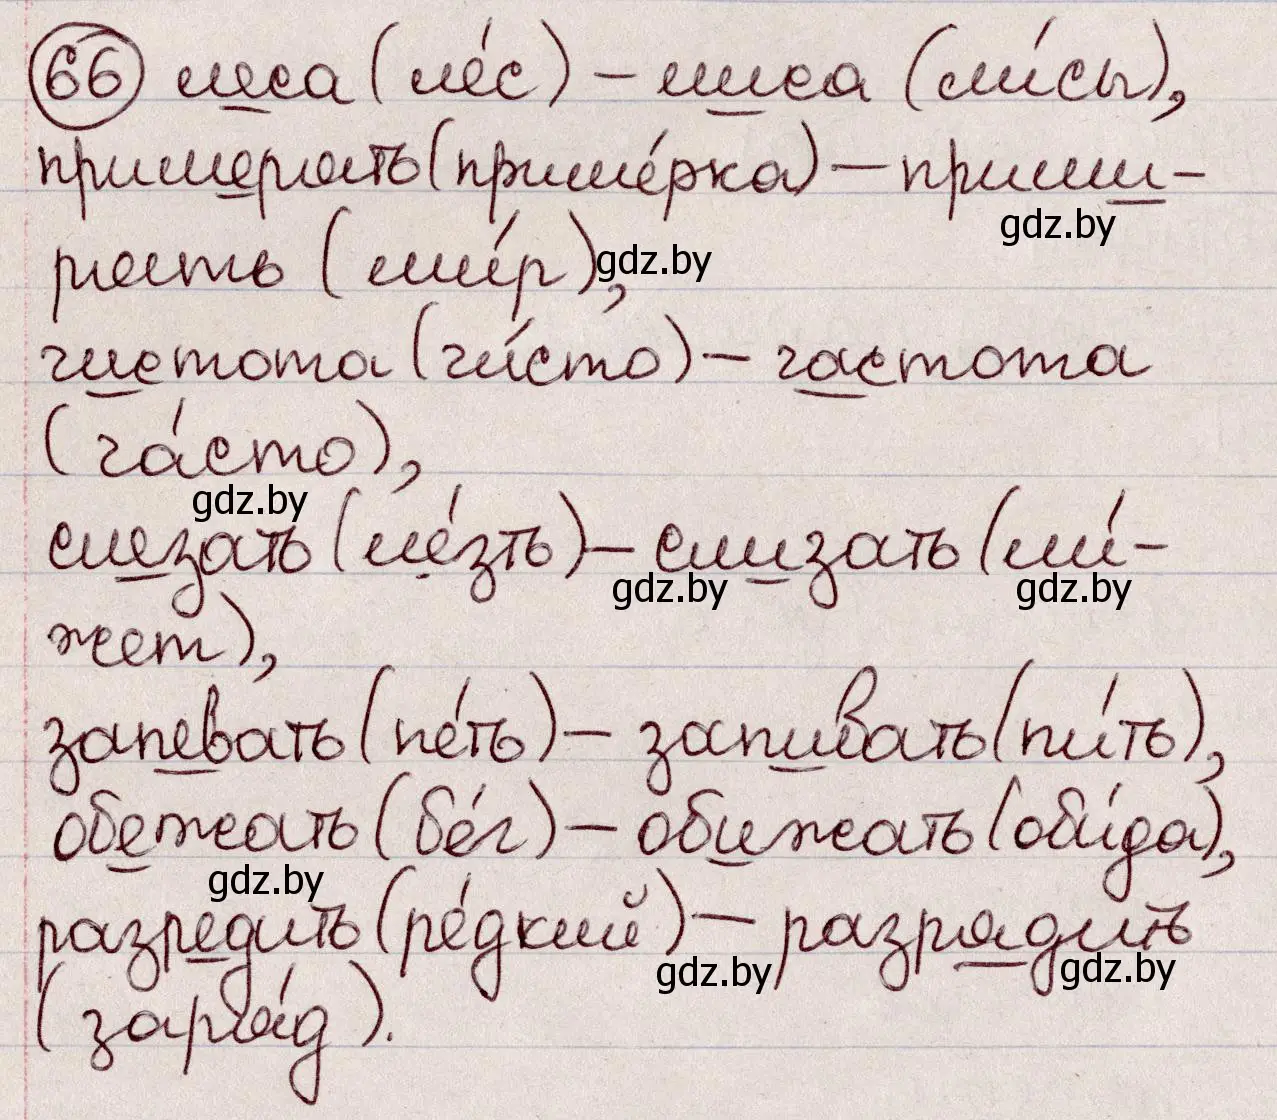 66 леса (ле́с) – лиса (ли́сы),
примерять (приме́рка) – прими-
gdz.by
рять (ми́р),
gdz.by
чистота (чи́сто) – частота
(ча́сто),
gdz.by
слезать (ле́зть) – слизать (ли́-
gdz.by gdz.by
жет),
запевать (пе́ть) – запивать (пи́ть),
обежать (бе́г) – обижать (оби́да),
gdz.by
разредить (ре́дкий) – разрядить
gdz.by gdz.by
(заря́д).